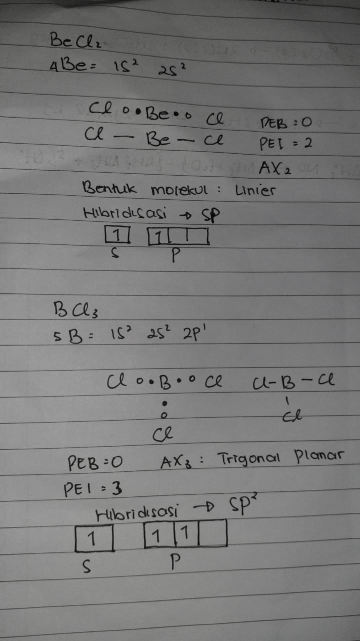 BeCl₂
4Be = 1S² 2S²
Cl o • Be • o Cl PEB = 0
Cl — Be — Cl PEI = 2
AX₂
Bentuk molekul : Linier
Hibridisasi → SP
1 1
S P
BCl₃
5 B = 1S² 2S² 2P¹
Cl o • B • o Cl Cl-B-Cl
•
o
Cl Cl
PEB = 0 AX₃ : Trigonal Planar
PEI = 3
Hibridisasi → SP²
1 1 1
S P